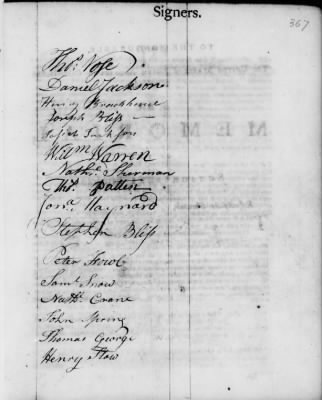 Signers.
367
Thos. Vose
Daniel Jackson
Henry
Joseph Bliss
Josiah Jackson
Willm Warren
Nathl. Sherman
Thos. Patten
Jona. Maynard
Stephen Bliss
Peter
Saml. Snow
Nathl. Crane
John Spring
Thomas George
Henry Stow